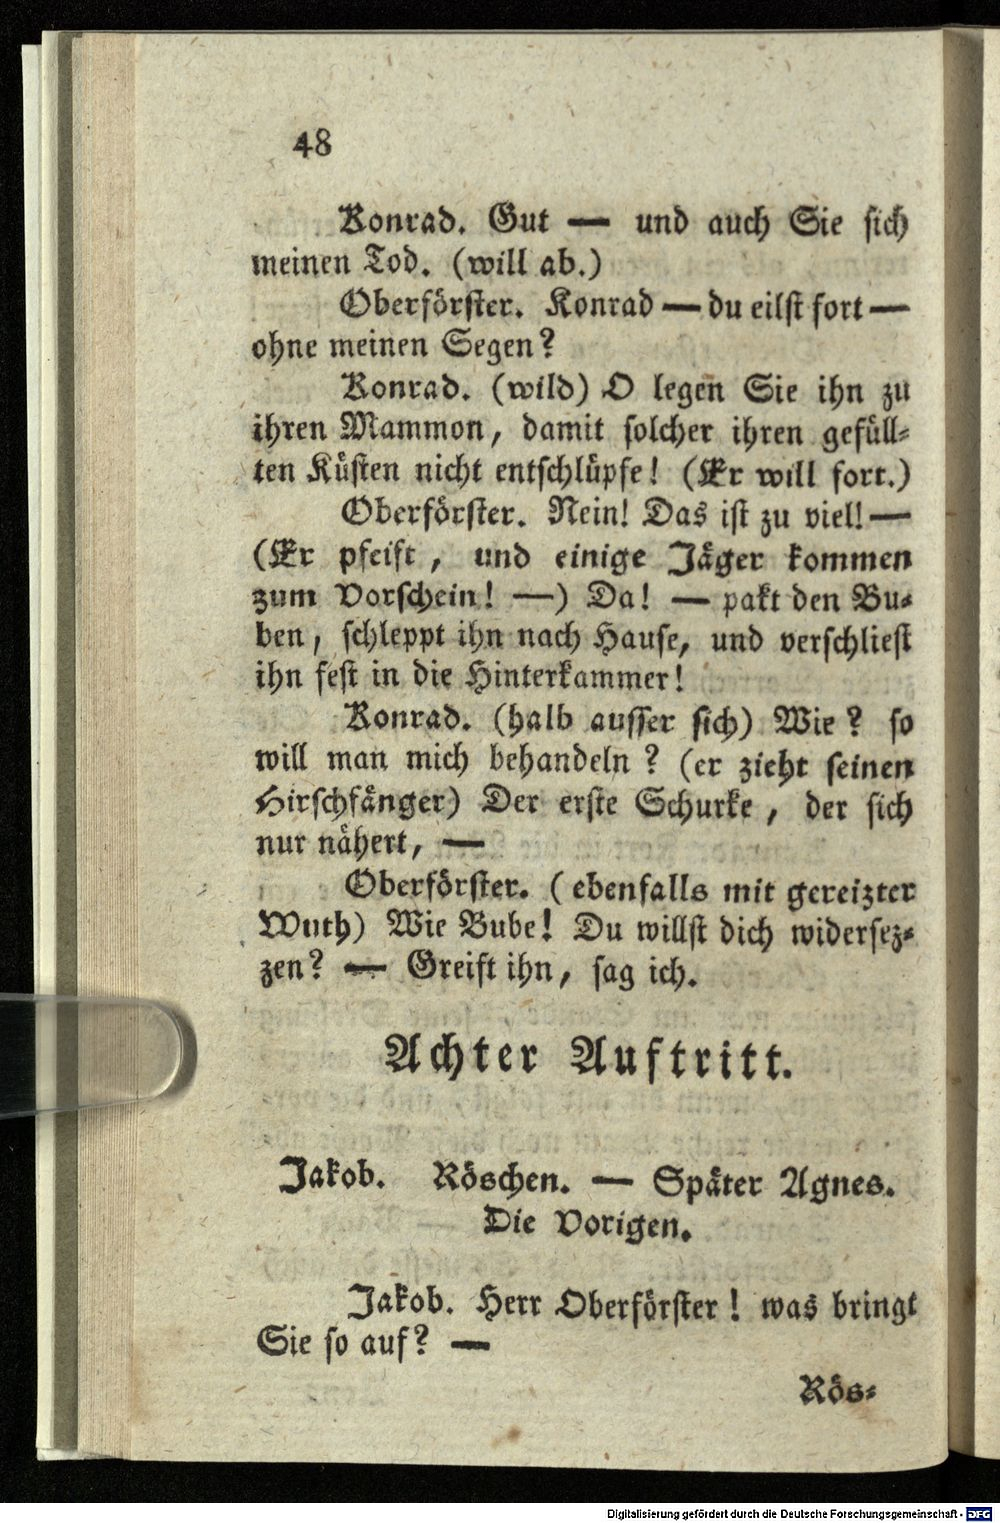 48
Konrad. Gut — und auch Sie sich
meinen Tod. (will ab.)
Oberförster. Konrad — du eilst fort —
ohne meinen Segen?
Konrad. (wild) O legen Sie ihn zu
ihren Mammon, damit solcher ihren gefüll-
ten Küsten nicht entschlüpfe! (Er will fort.)
Oberförster. Nein! Das ist zu viel! —
(Er pfeift, und einige Jäger kommen
zum Vorschein! —) Da! — pakt den Bu-
ben, schleppt ihn nach Hause, und verschliest
ihn fest in die Hinterkammer!
Konrad. (halb ausser sich) Wie? so
will man mich behandeln? (er zieht seinen
Hirschfänger) Der erste Schurke, der sich
nur nähert, —
Oberförster. (ebenfalls mit gereizter
Wuth) Wie Bube! Du willst dich widersez-
zen? — Greift ihn, sag ich.
Achter Auftritt.
Jakob. Röschen. — Später Agnes.
Die Vorigen.
Jakob. Herr Oberförster! was bringt
Sie so auf? —
Rös-
Digitalisierung gefördert durch die Deutsche Forschungsgemeinschaft - DFG